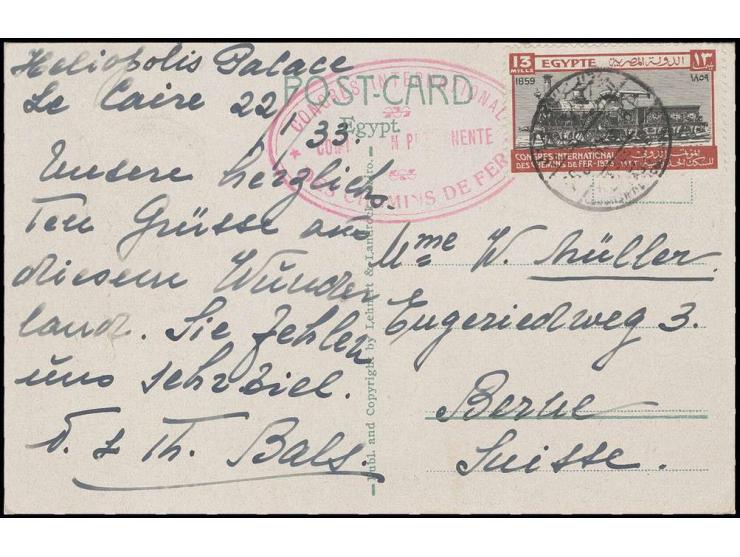 Heliopolis Palace
Le Caire 22/1 33.
Unsere herzlich-
ten Grüsse aus
diesem Wunder
land. Sie fehlen
uns sehr viel.
D. & Th. Bals.
POST-CARD
Egypt.
CONGRÈS INTERNATIONAL
PERMANENTE
DES CHEMINS DE FER
Publ. and Copyright by Lehnert & Landrock, Cairo.
13 MILLS
EGYPTE
الدولة المصرية
١٣
1859
١٨٥٩
CONGRES INTERNATIONAL
DES CHEMINS DE FER-1933
المؤتمر الدولى
للسكك الحديدية
Mme W. Müller.
Engeriedweg 3.
Berne
Suisse.